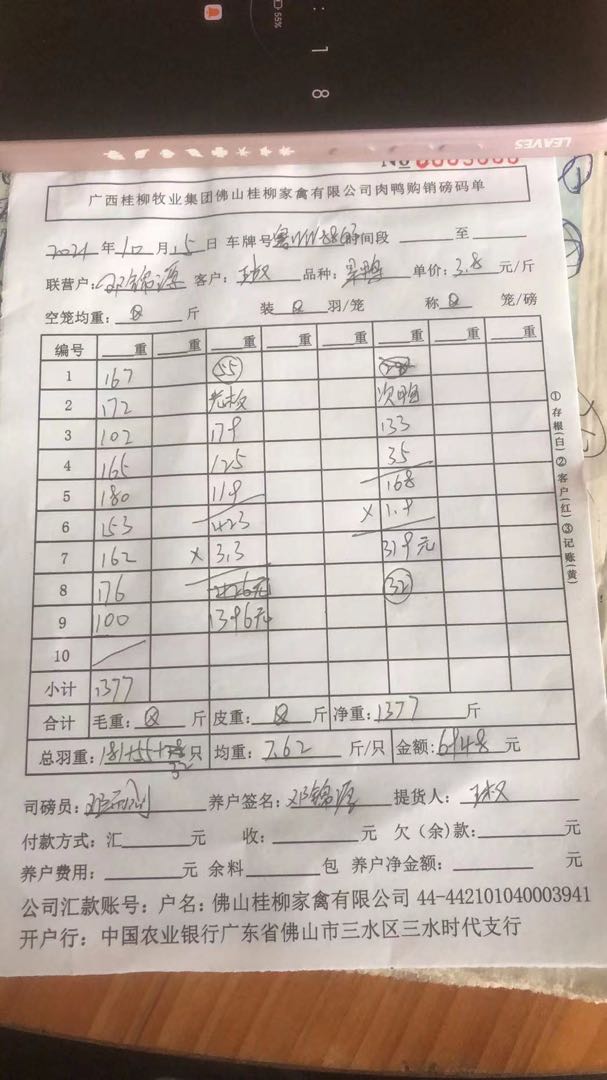 55%
18
LEAVES
No
广西桂柳牧业集团佛山桂柳家禽有限公司肉鸭购销磅码单
2021年10月15日 车牌号 时间段 至
联营户:邓锦源 客户: 品种: 单价:3.8 元/斤
空笼均重:0 斤 装 0 羽/笼 称 0 笼/磅
编号 重 重 重 重 重 重 重 重
1 167 55
2 172 次鸭
3 102 179 133
4 165 125 35
5 180 119 168
6 153 423 ×1.9
7 162 ×3.3 319元
8 176 32
9 100 1396元
10
小计 1377
合计 毛重:0 斤 皮重:0 斤 净重:1377 斤
总羽重:181+55+ 32 只 均重:7.62 斤/只 金额:6948 元
司磅员: 养户签名:邓锦源 提货人:
付款方式:汇 元 收: 元 欠(余)款: 元
养户费用: 元 余料 包 养户净金额: 元
公司汇款账号:户名:佛山桂柳家禽有限公司 44-442101040003941
开户行:中国农业银行广东省佛山市三水区三水时代支行
①存根(白)②客户(红)③记账(黄)